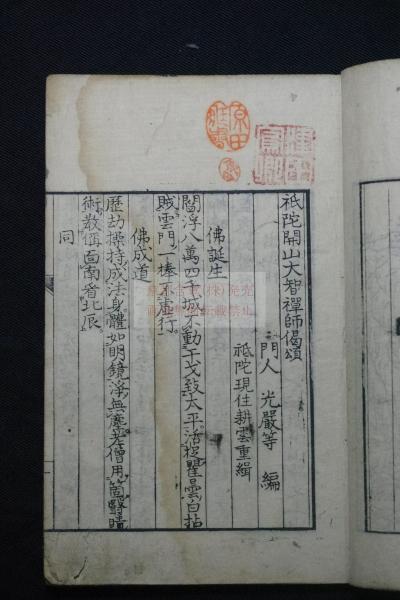 祗陀開山大智禪師偈頌
門人 光嚴等 編
祗陀現住耕雲重緝
佛誕生
閻浮八萬四千城不動干戈致太平活捉瞿曇白拈
賊雲門一棒虛行
佛成道
歷劫操持成法身體如明鏡淨無塵老僧用箇醫睛
術教稱面南看北辰
同
原田